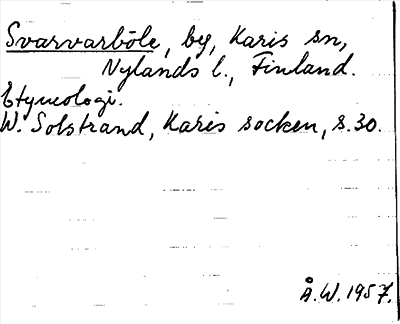 Svarvarböle, by, Karis sn,
Nylands l., Finland.
Etymologi.
W. Solstrand, Karis socken, s.30.
Å.W.1957.